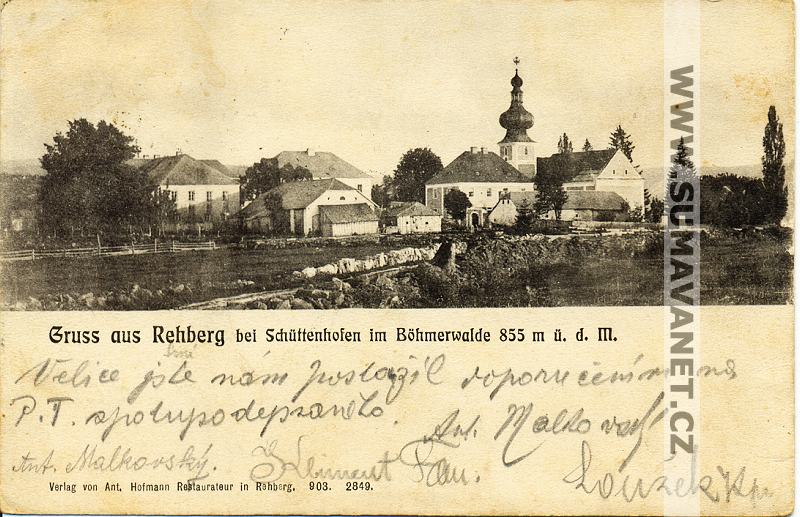 Gruss aus Rehberg bei Schüttenhofen im Böhmerwalde 855 m ü. d. M.
Velice jste nám poslažil doporučením na
P. T. spolupodepsaného.
Ant. Malkovský
Ant. Malkovský. Kliment Fan.
Verlag von Ant. Hofmann Restaurateur in Rehberg. 903. 2849.
WWW.SUMAVANET.CZ